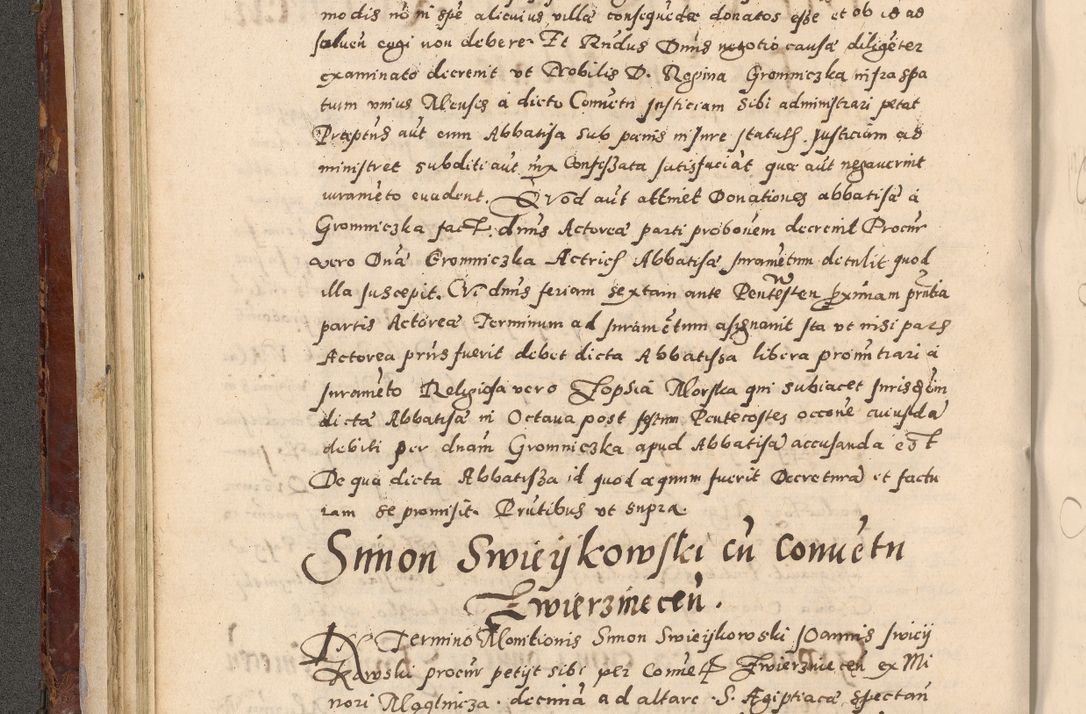 modis nō ni spe alicuius villæ consequēdæ donatos esse et ob id ad
soluen cogi non debere. Et Rndus Dnus negotio causæ diligēter
examinato decrevit vt Nobilis D. Regina Gromniczka infra spa
tium vnius Mensis à dicto Conuētu Justiciam sibi administrari petat
Præptūs aūt eum Abbatissa sub pænis in Jure statutis Justiciam ad
ministret subditi aūt in Confessata satisfaciāt quæ aūt negauerint
iuramēto euadent. Qvod aūt attinet Donationes abbatissæ à
Gromniczka fact. dnus Actoreæ parti probonem decrevit Procur
vero Dnæ Gromniczka Actricis Abbatissæ Juramētum detulit quod
illa suscepit. Cui dnus feriam sextam ante Pentecosten pxīmam pntia
partis Actoreæ Terminum ad Juramētum assignauit ita vt nisi pars
Actorea prius fuerit debet dicta Abbatissa libera pronuntiari à
Juramēto Religiosa vero Zophia Morska qui subiacet Jurisdom
dictæ Abbatissæ in Octaua post festum Pentecostes occone cuiusdā
debiti per dnam Gromniczka apud Abbatissā accusanda est
De qua dicta Abbatissa id quod æquum fuerit Decreturā et factu
ram se promisit. Pntibus vt supra
Simon Swieijkowski cū Conuētu
Zwierzinecen.
In Termino Monitionis Simon Swieijkowski Joannis Swieij
Kowski procur petijt sibi per Conuet Zwierzinecen ex Mi
nori Moglnicza decimā ad altare S. Ægiptiacæ spectan